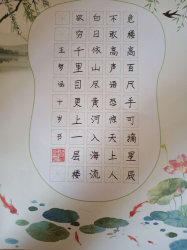 危楼高百尺手可摘星辰
不敢高声语恐惊天上人
白日依山尽黄河入海流
欲穷千里目更上一层楼
王梦十岁书